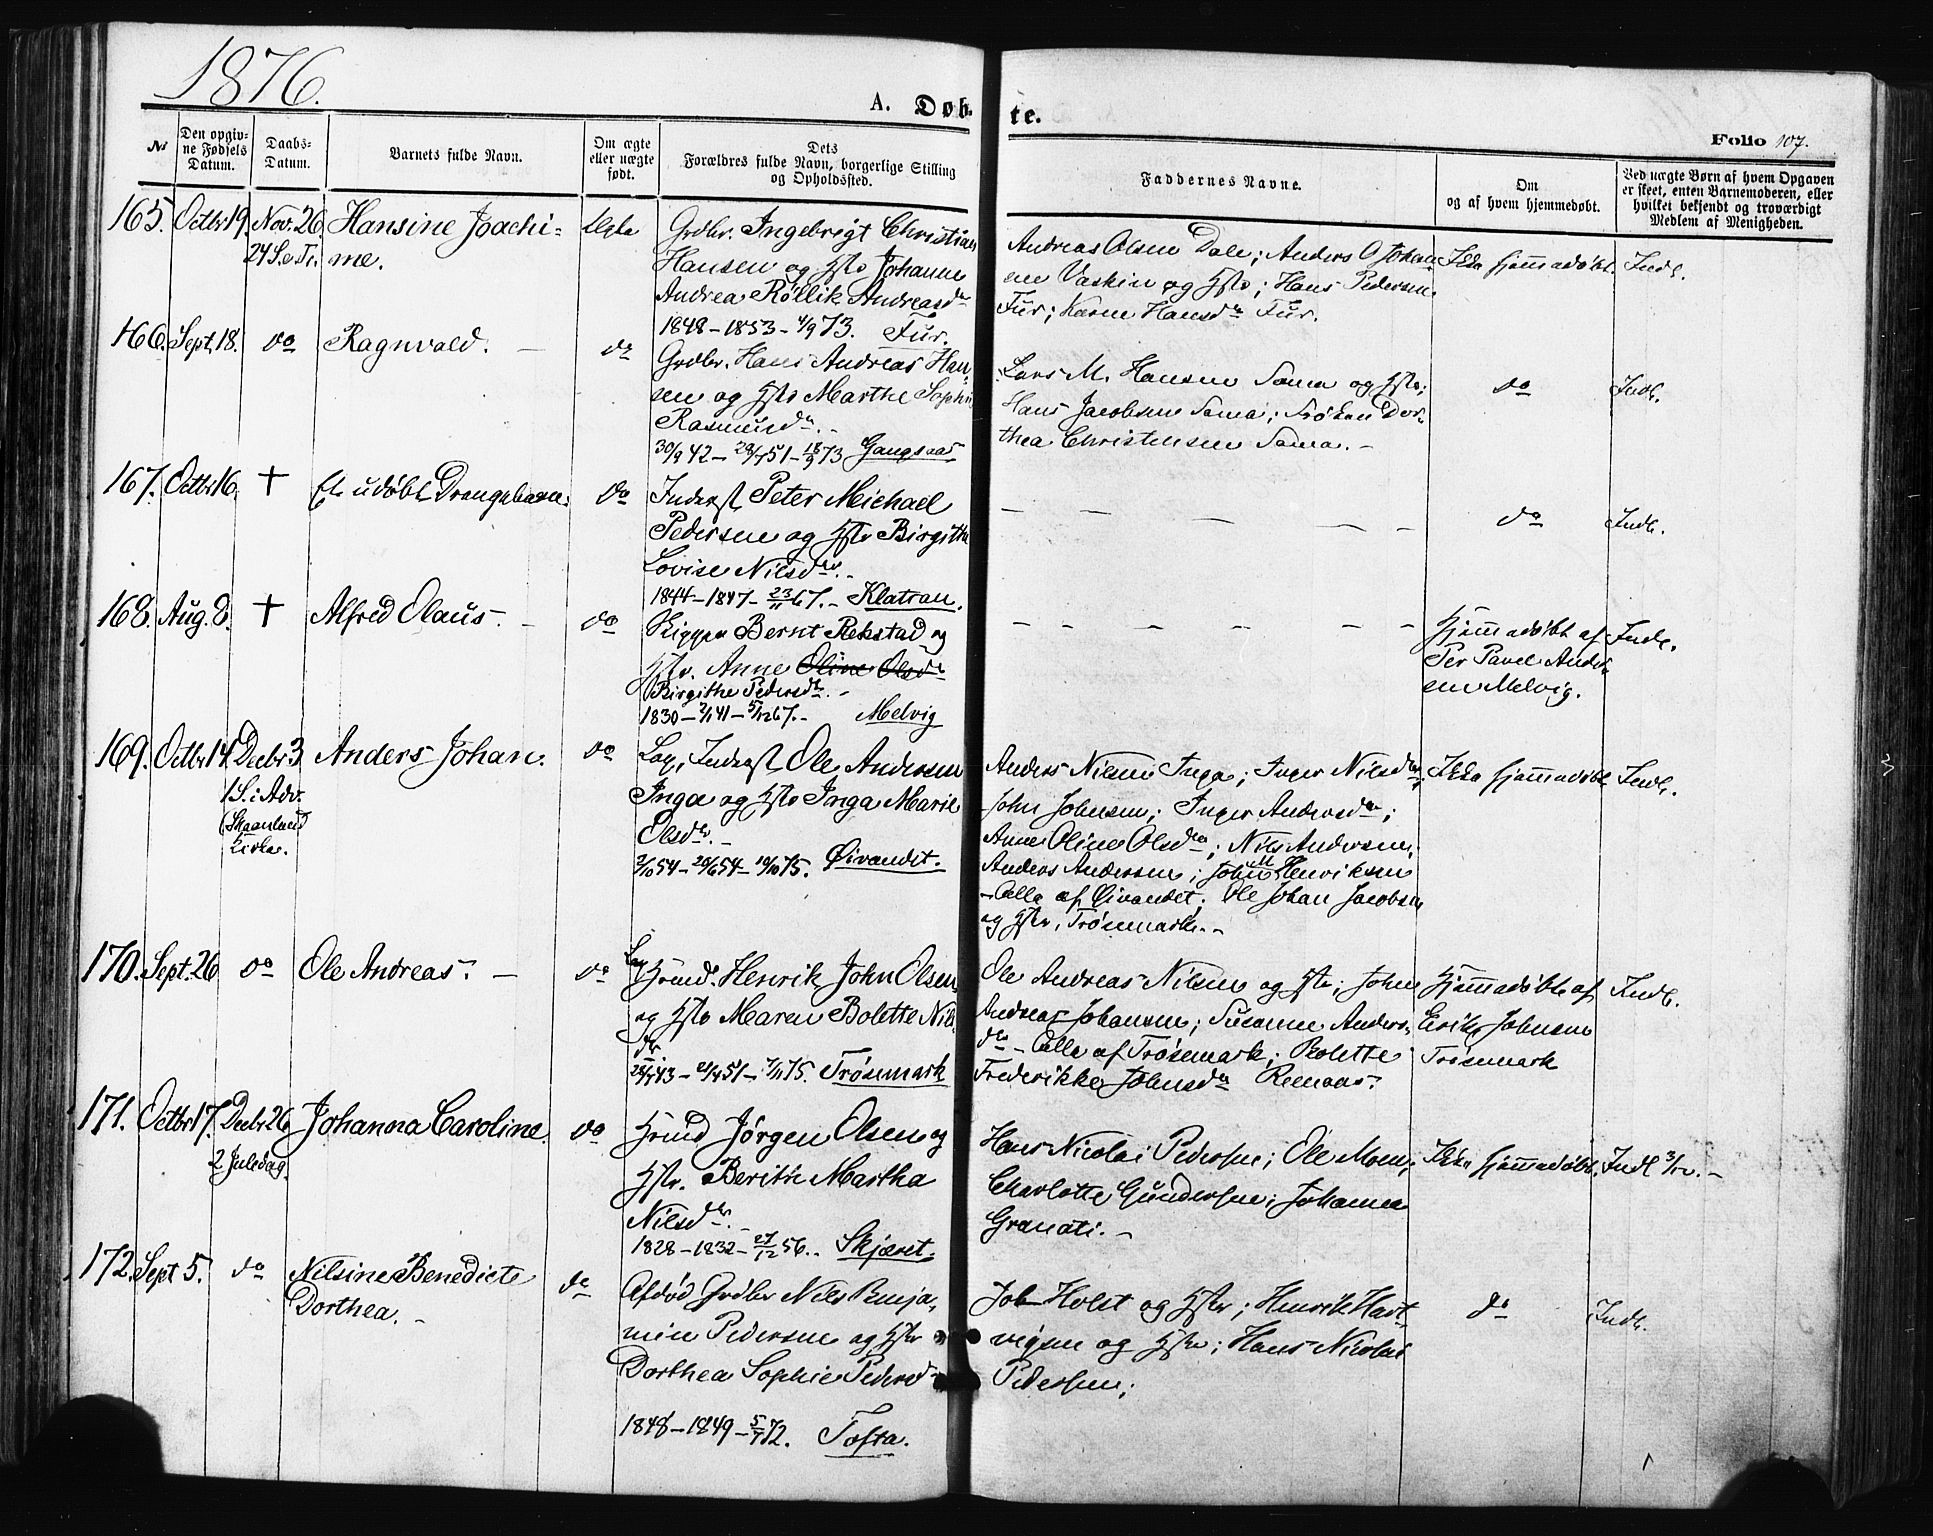 1876.
A. Døbte.
Folio 107.
No
Den opgivne Fødsels Datum.
Daabs-Datum.
Barnets fulde Navn.
Om ægte eller uægte født.
Dets Forældres fulde Navn, borgerlige Stilling og Opholdssted.
Faddernes Navne.
Om og af hvem hjemmedøbt.
Ved uægte Børn af hvem Opgaven er skeet, enten Barnemoderen, eller hvilket bekjendt og troværdigt Medlem af Menigheden.
165. Octbr 19. Nov. 26. Hansine Joachi-
24 S. e. Tr. me.
Ægte
Grdbr. Ingebrigt Christian
Hansen og Hstr Johanna
Andrea Røllik Andreasdr
1848 - 1853 - 4/9 73. Fur.
Andreas Olsen Dale; Anders O Johan-
sen Vaskin og Hstr; Hans Pedersen
Fur; Karen Hansdr Fur.
Ikke hjemmedøbt.
Indl.
166. Sept. 18. do Ragnvald. -
do
Grdbr. Hans Andreas Han-
sen og Hstr Marthe Sophie
Rasmusdr. -
30/9 42 - 29/7 51 - 18/9 73 Gangsaas
Lars M. Hansen Sama og Hstr;
Hans Jacobsen Sama; Frøken Dor-
thea Christensen Sama. -
do
Indl.
167. Octbr 16. † Et udøbt Drengebarn.
do
Inderst Peter Michael
Pedersen og Hstr Birgithe
Lovise Nilsdtr. -
1844 - 1847 - 23/11 67. - Klatran.
- - - - -
do
Indl.
168. Aug. 8. † Alfred Olaus. -
do
Skipper Bernt Rekstad og
Hstr. Anne Oline Olsdr
Birgithe Pedersdtr. -
1830 - 2/1 41 - 5/12 67. - Melvig
- - - - - -
Hjemmedøbt af
Per Pavel Ander-
sen Melvig.
Indl.
169. Octbr 14. Decbr 3. Anders Johan.
1 S. i Adv.
(Skaanland
Kirke.
do
Lap, Inderst Ole Andersen
Inga og Hstr Inga Marie
Olsdr. -
2/10 54 - 20/6 54 - 10/10 75. Øivandet.
Anders Nilsen Inga; Inger Nilsdtr;
John Johnsen; Inger Andersdtr;
Anne Oline Olsdtr; Nils Andersen,
Anders Andersen; John Henriksen
- Alle af Øivandet; Ole Johan Jacobsen
og Hstr, Trøsemark. -
Ikke hjemmedøbt
Indl.
170. Sept. 26 do Ole Andreas. -
do
Lap
Huusmd. Henrik John Olsen
og Hstr Maren Bolette Nils-
dr
Trøsemark
Ole Andreas Nilsen og Hstr; John
Andreas Johansen; Susanne Anders-
dtr - Alle af Trøsemark; Bolette
Frederikke Johnsdtr Remaas.
Hjemmedøbt af
Erik Johnsen
Trøsemark
Indl.
171. Octbr 17. Decbr 26 Johanna Caroline.
2 Juledag.
do
Huusmd Jørgen Olsen og
Hstr. Berith Martha
Nilsdtr. -
1828 - 1832 - 27/12 56. - Skjæret.
Hans Nicolai Pedersen; Ole Moen;
Charlotte Gundersen; Johanna
Granati. -
Ikke hjemmedøbt.
Indl 3/12. -
172. Sept 5. do Nilsine Benedicte
Dorthea. -
do
Afdød Grdbr Nils Benja-
min Pedersen og Hstr
Dorthea Sophie Pedersdr
1848 - 1849 - 5/7 72. Tofta.
Job Holst og Hstr; Henrik Hart-
vigsen og Hstr; Hans Nicolai
Pedersen;
do
Indl.